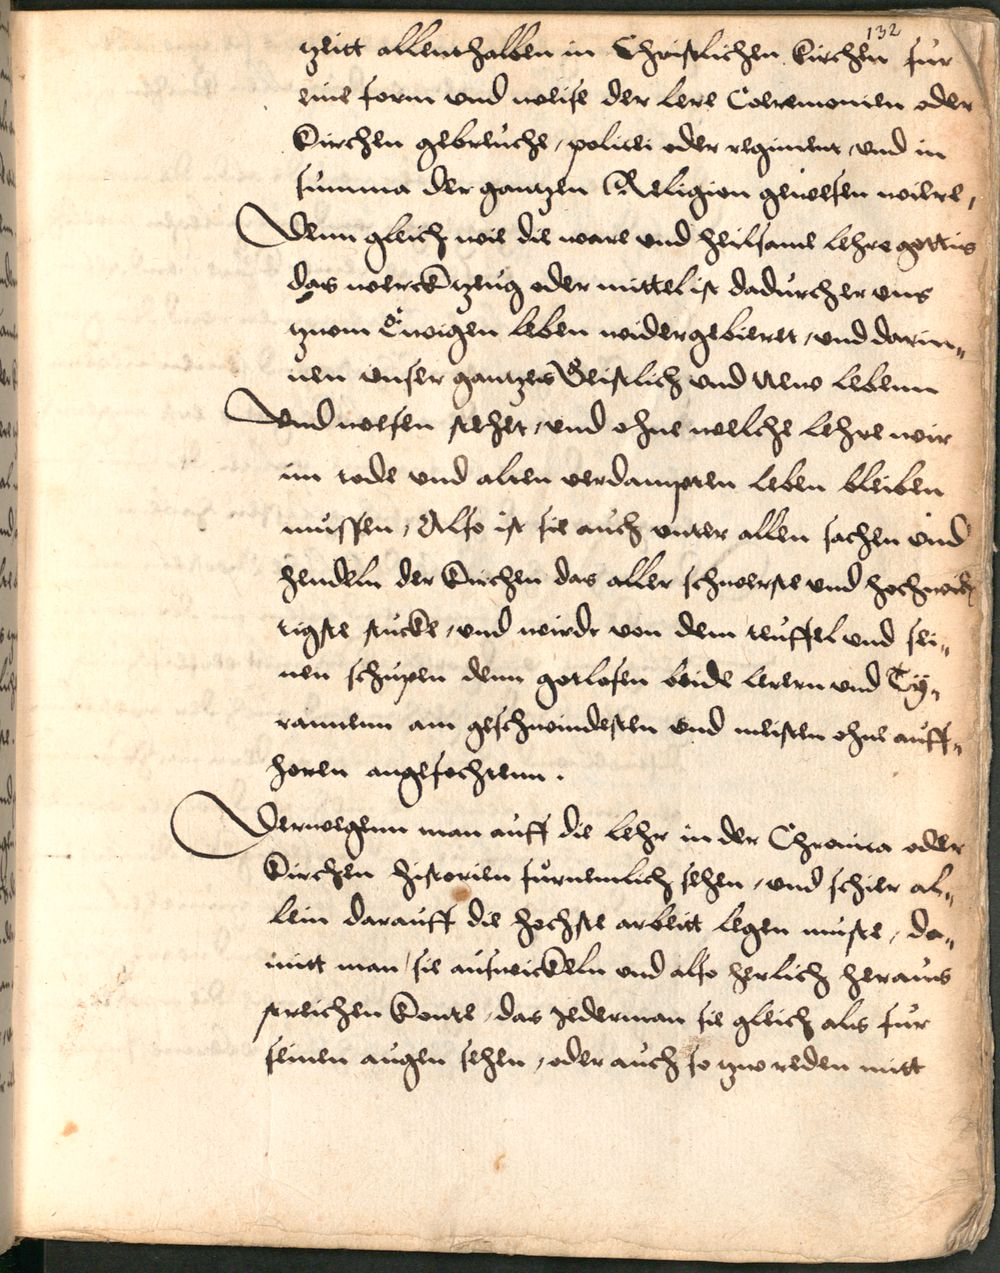 132
tzeitt allenthalben in Christlichen Kirchen fur
eine form vnd weise der lere Ceremonien oder
Kirchen gebreuche, politei oder regiment, vnd in
summa der gantzen Religion gewesen were,
Denn gleich wie die ware vnd heilsame lehre gottis
das werck tzeug oder mittel ist dadurch er vns
tzwom Ewigen leben widergebieret, vnd darin„
nen vnser gantzes Geistlich vnd New lebenn
Vnd wesen stehet, vnd ohne welche lehre wir
im tode vnd alten verdampten leben bleiben
mussen, Also ist sie auch vnter allen sachen vnd
hendeln der Kirchen das aller schwerste vnd hochwich
tigste stucke, vnd wirdt von dem teuffel vnd sei„
nen schupen denn gotlosen beide lerern vnd Ty„
rannenn am geschwindesten vnd meisten ohne auff„
horen angefochtenn.
Derwegenn man auff die lehr in der Chronica oder
Kirchen historien furnemlich sehen, vnd schier al„
lein darauff die hochste arbeitt legen muste, da„
mitt man sie aufwickeln vnd also herlich heraus
streichen konte, das jederman sie gleich als fur
seinen augen sehen, oder auch so tzw reden mitt